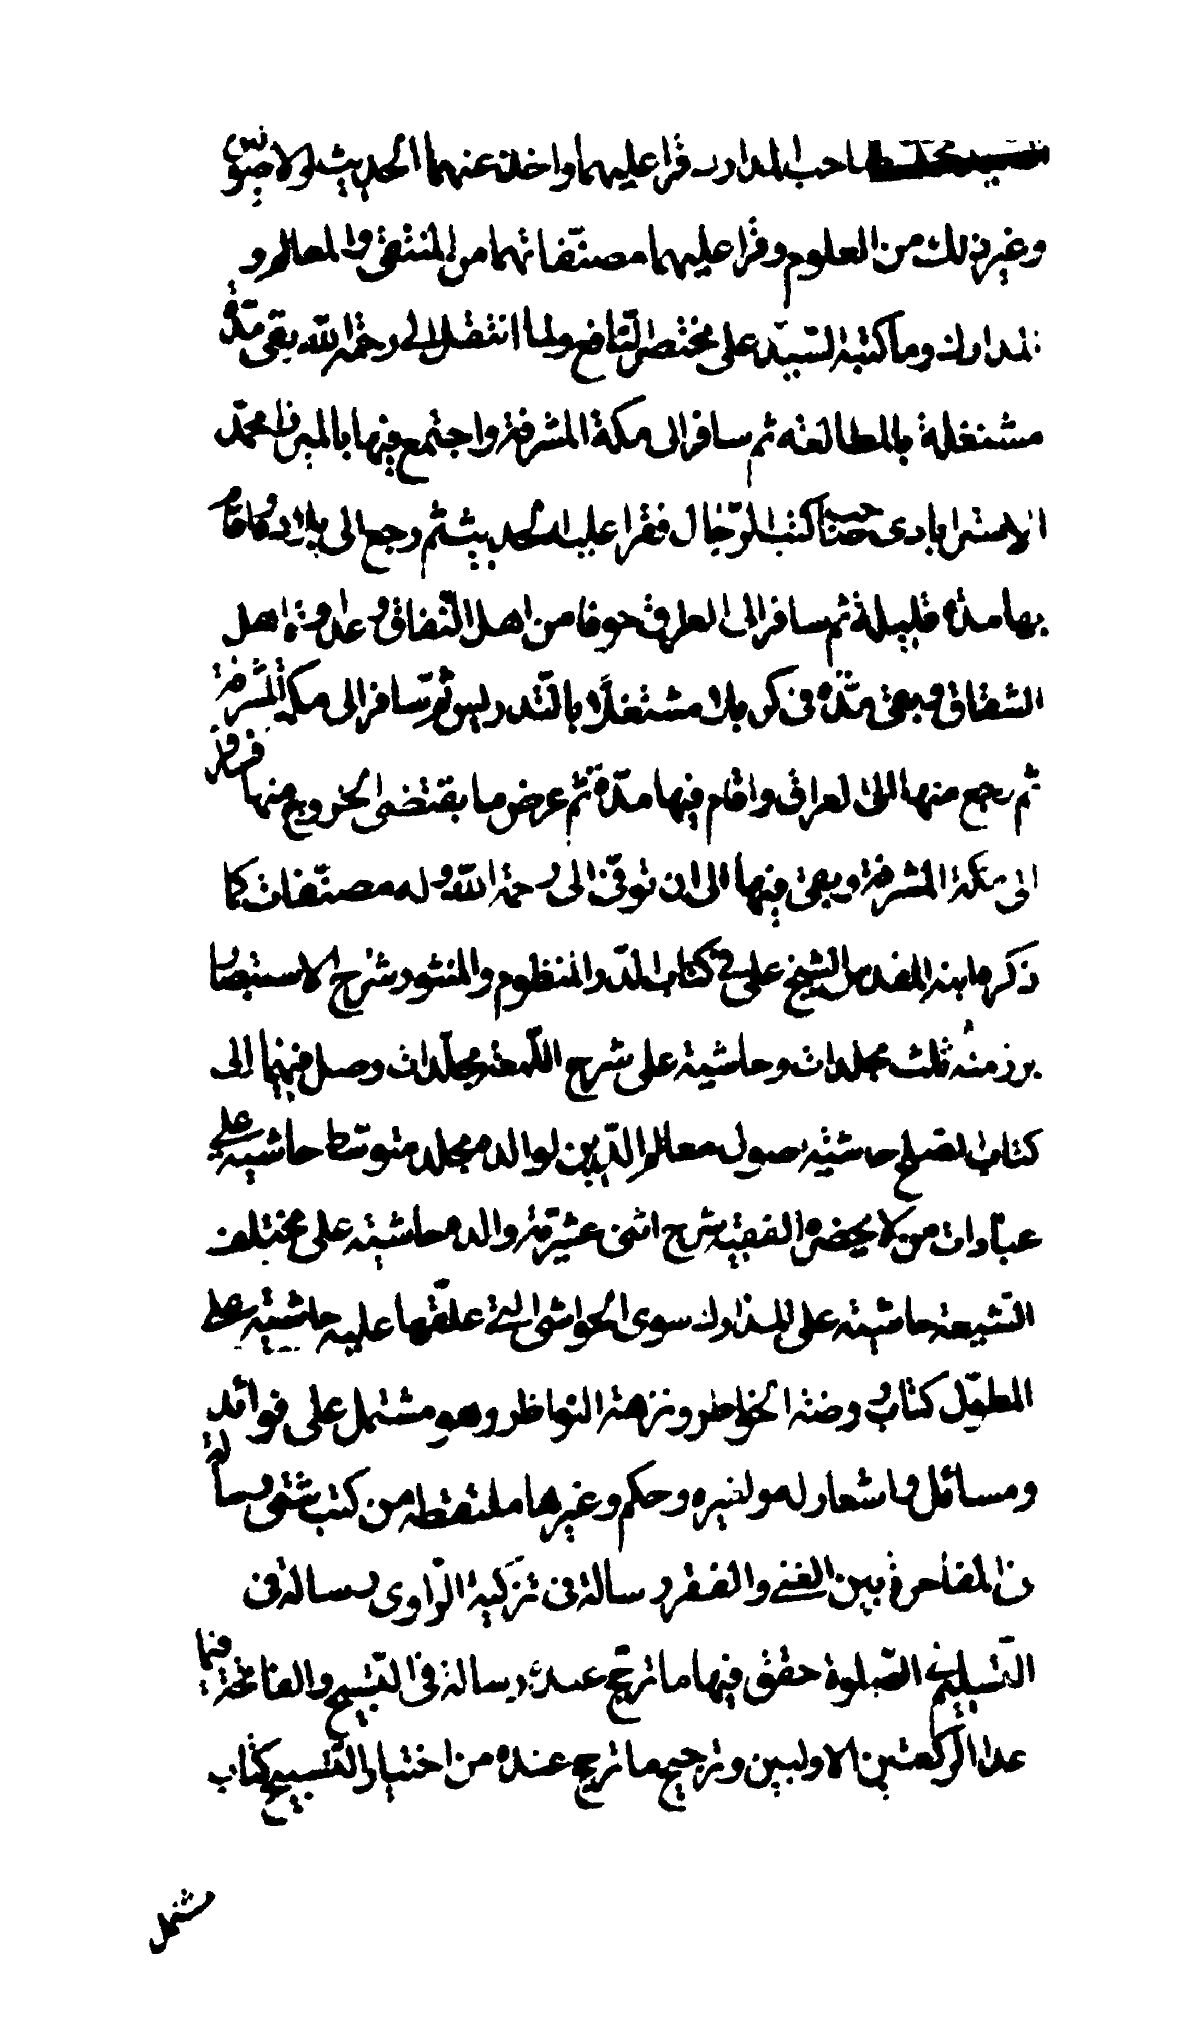 السيد محمد صاحب المدارك قرا عليهما واخذ عنهما الحديث والاصولين
وغير ذلك من العلوم وقرا عليهما مصنّفاتهما من المنتقى والمعالم و
المدارك وما كتبه السّيّد على مختصر النّافع ولما انتقلا الى رحمة الله بقى مدّة
مشتغلة بالمطالعة ثم سافر الى مكة المشرفة واجتمع فيها بالميرزا محمّد
الاسترابادى صاحب كتاب الرّجال فقرا عليه الحديث ثم رجع الى بلاده واقام
بها مدة قليلة ثم سافر الى العراق خوفا من اهل النّفاق وعداوة اهل
الشقاق وبقى مدّة فى كربلا مشتغلا بالتّدريس ثم سافر الى مكة المشرفة
ثم رجع منها الى العراق واقام فيها مدّة ثم عرض ما يقتضى الخروج منها فسافر
الى مكة المشرفة وبقى فيها الى ان توفى الى رحمة الله وله مصنّفات كما
ذكرها ابنه المقدس الشيخ على فى كتاب الدّر المنظوم والمنثور شرح الاستبصار
برز منه ثلث مجلدات وحاشية على شرح اللّمعة مجلّدان وصل فيهما الى
كتاب الصلح حاشية اصول معالم الدّين لوالده مجلد متوسّط حاشية على
عبارات من لا يحضره الفقيه شرح اثنى عشرية والده حاشية على مختلف
الشّيعة حاشية على المدارك سوى الحواشى التى علّقها عليه حاشية على
المطوّل كتاب روضة الخواطر ونزهة النواظر وهو مشتمل على فوائد
ومسائل واشعار له ولغيره وحكم وغيرها ملتقطة من كتب شتى رسالة
فى المفاخرة بين الغنى والفقر رسالة فى تزكية الرّاوى رسالة فى
التسليم فى الصّلوة حقق فيها ما ترجح عنده رسالة فى التّسبيح والفاتحة فيما
عدا الركعتين الاوليين وترجيح ما ترجح عنده من اختيار التّسبيح كتاب
مشتمل